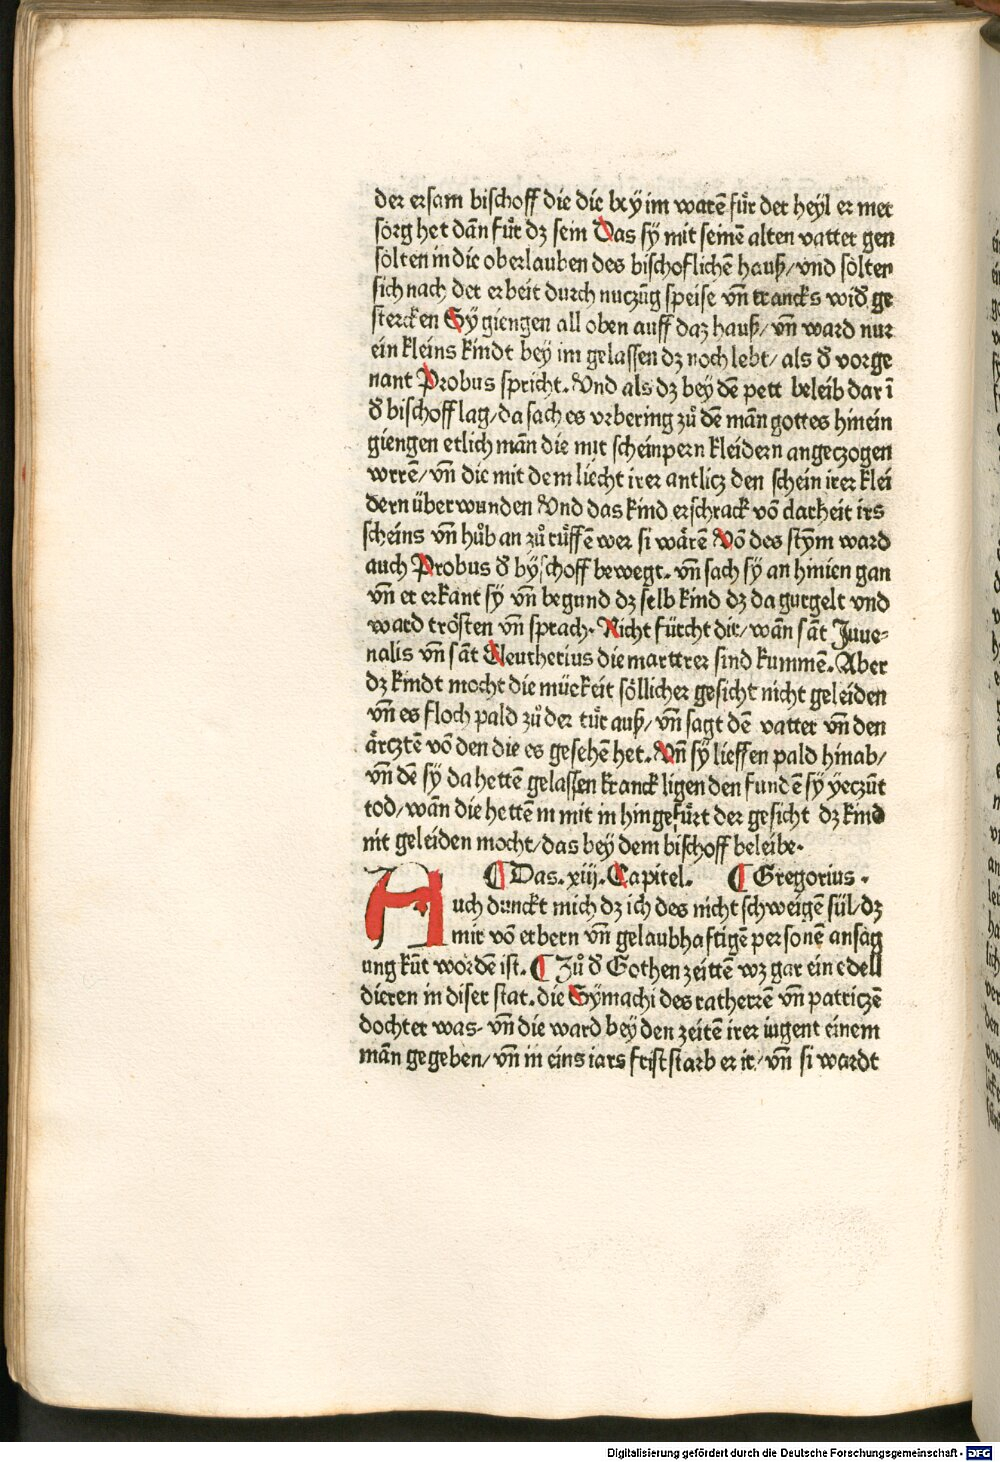 der ersam bischoff die die bey im warē fuͤr der heyl er mer
sorg het dān fuͤr dz sein Das sy mit seinē alten vatter gen
solten in die oberlauben des bischoflichē hauß/vnd solten
sich nach der erbeit durch nuczūg speise vn̄ trancks wid̄ ge
stercken Sy giengen all oben auff daz hauß/ vn̄ ward nur
ein kleins kindt bey im gelassen dz noch lebt/ als d̄ vorge
nant Probus spricht. Vnd als dz bey dē pett beleib dar ī
d̄ bischoff lag/da sach es vrbering zuͦ dē mān gottes hinein
giengen etlich mān die mit scheinpern kleidern angeczogen
wrrē/ vn̄ die mit dem liecht irer antlicz den schein irer klei
dern überwunden Vnd das kind erschrack vō clarheit irs
scheins vn̄ huͦb an zuͦ ruͤffē wer si wärē Vō des stym ward
auch Probus d̄ byschoff bewegt. vn̄ sach sy an hinien gan
vn̄ er erkant sy vn̄ begund dz selb kind dz da gurgelt vnd
ward trösten vn̄ sprach. Nicht fürcht dir/ wān sāt Juue-
nalis vn̄ sāt Eleutherius die martrer sind kummē. Aber
dz kindt mocht die müekeit söllicher gesicht nicht geleiden
vn̄ es floch pald zuͦ der tuͤr auß/ vn̄ sagt dē vatter vn̄ den
ärcztē vō den die es gesehē het. Vn̄ sy lieffen pald hinab/
vn̄ dē sy da hettē gelassen kranck ligen den fundē sy yeczūt
tod/ wān die hettē in mit in hingefuͤrt der gesicht dz kind
nit geleiden mocht/das bey dem bischoff beleibe.
¶ Das. xiij. Capitel. ¶ Gregorius.
Auch dunckt mich dz ich des nicht schweigē sül/dz
mir vō erbern vn̄ gelaubhaftigē personē ansag
ung kūt wordē ist. ¶ Zuͦ d̄ Gothen zeittē wz gar ein edell
dieren in diser stat. die Symachi des ratherrē vn̄ patriczē
dochter was. vn̄ die ward bey den zeitē irer iugent einem
mān gegeben/ vn̄ in eins iars frist starb er ir/ vn̄ si wardt
Digitalisierung gefördert durch die Deutsche Forschungsgemeinschaft - DFG